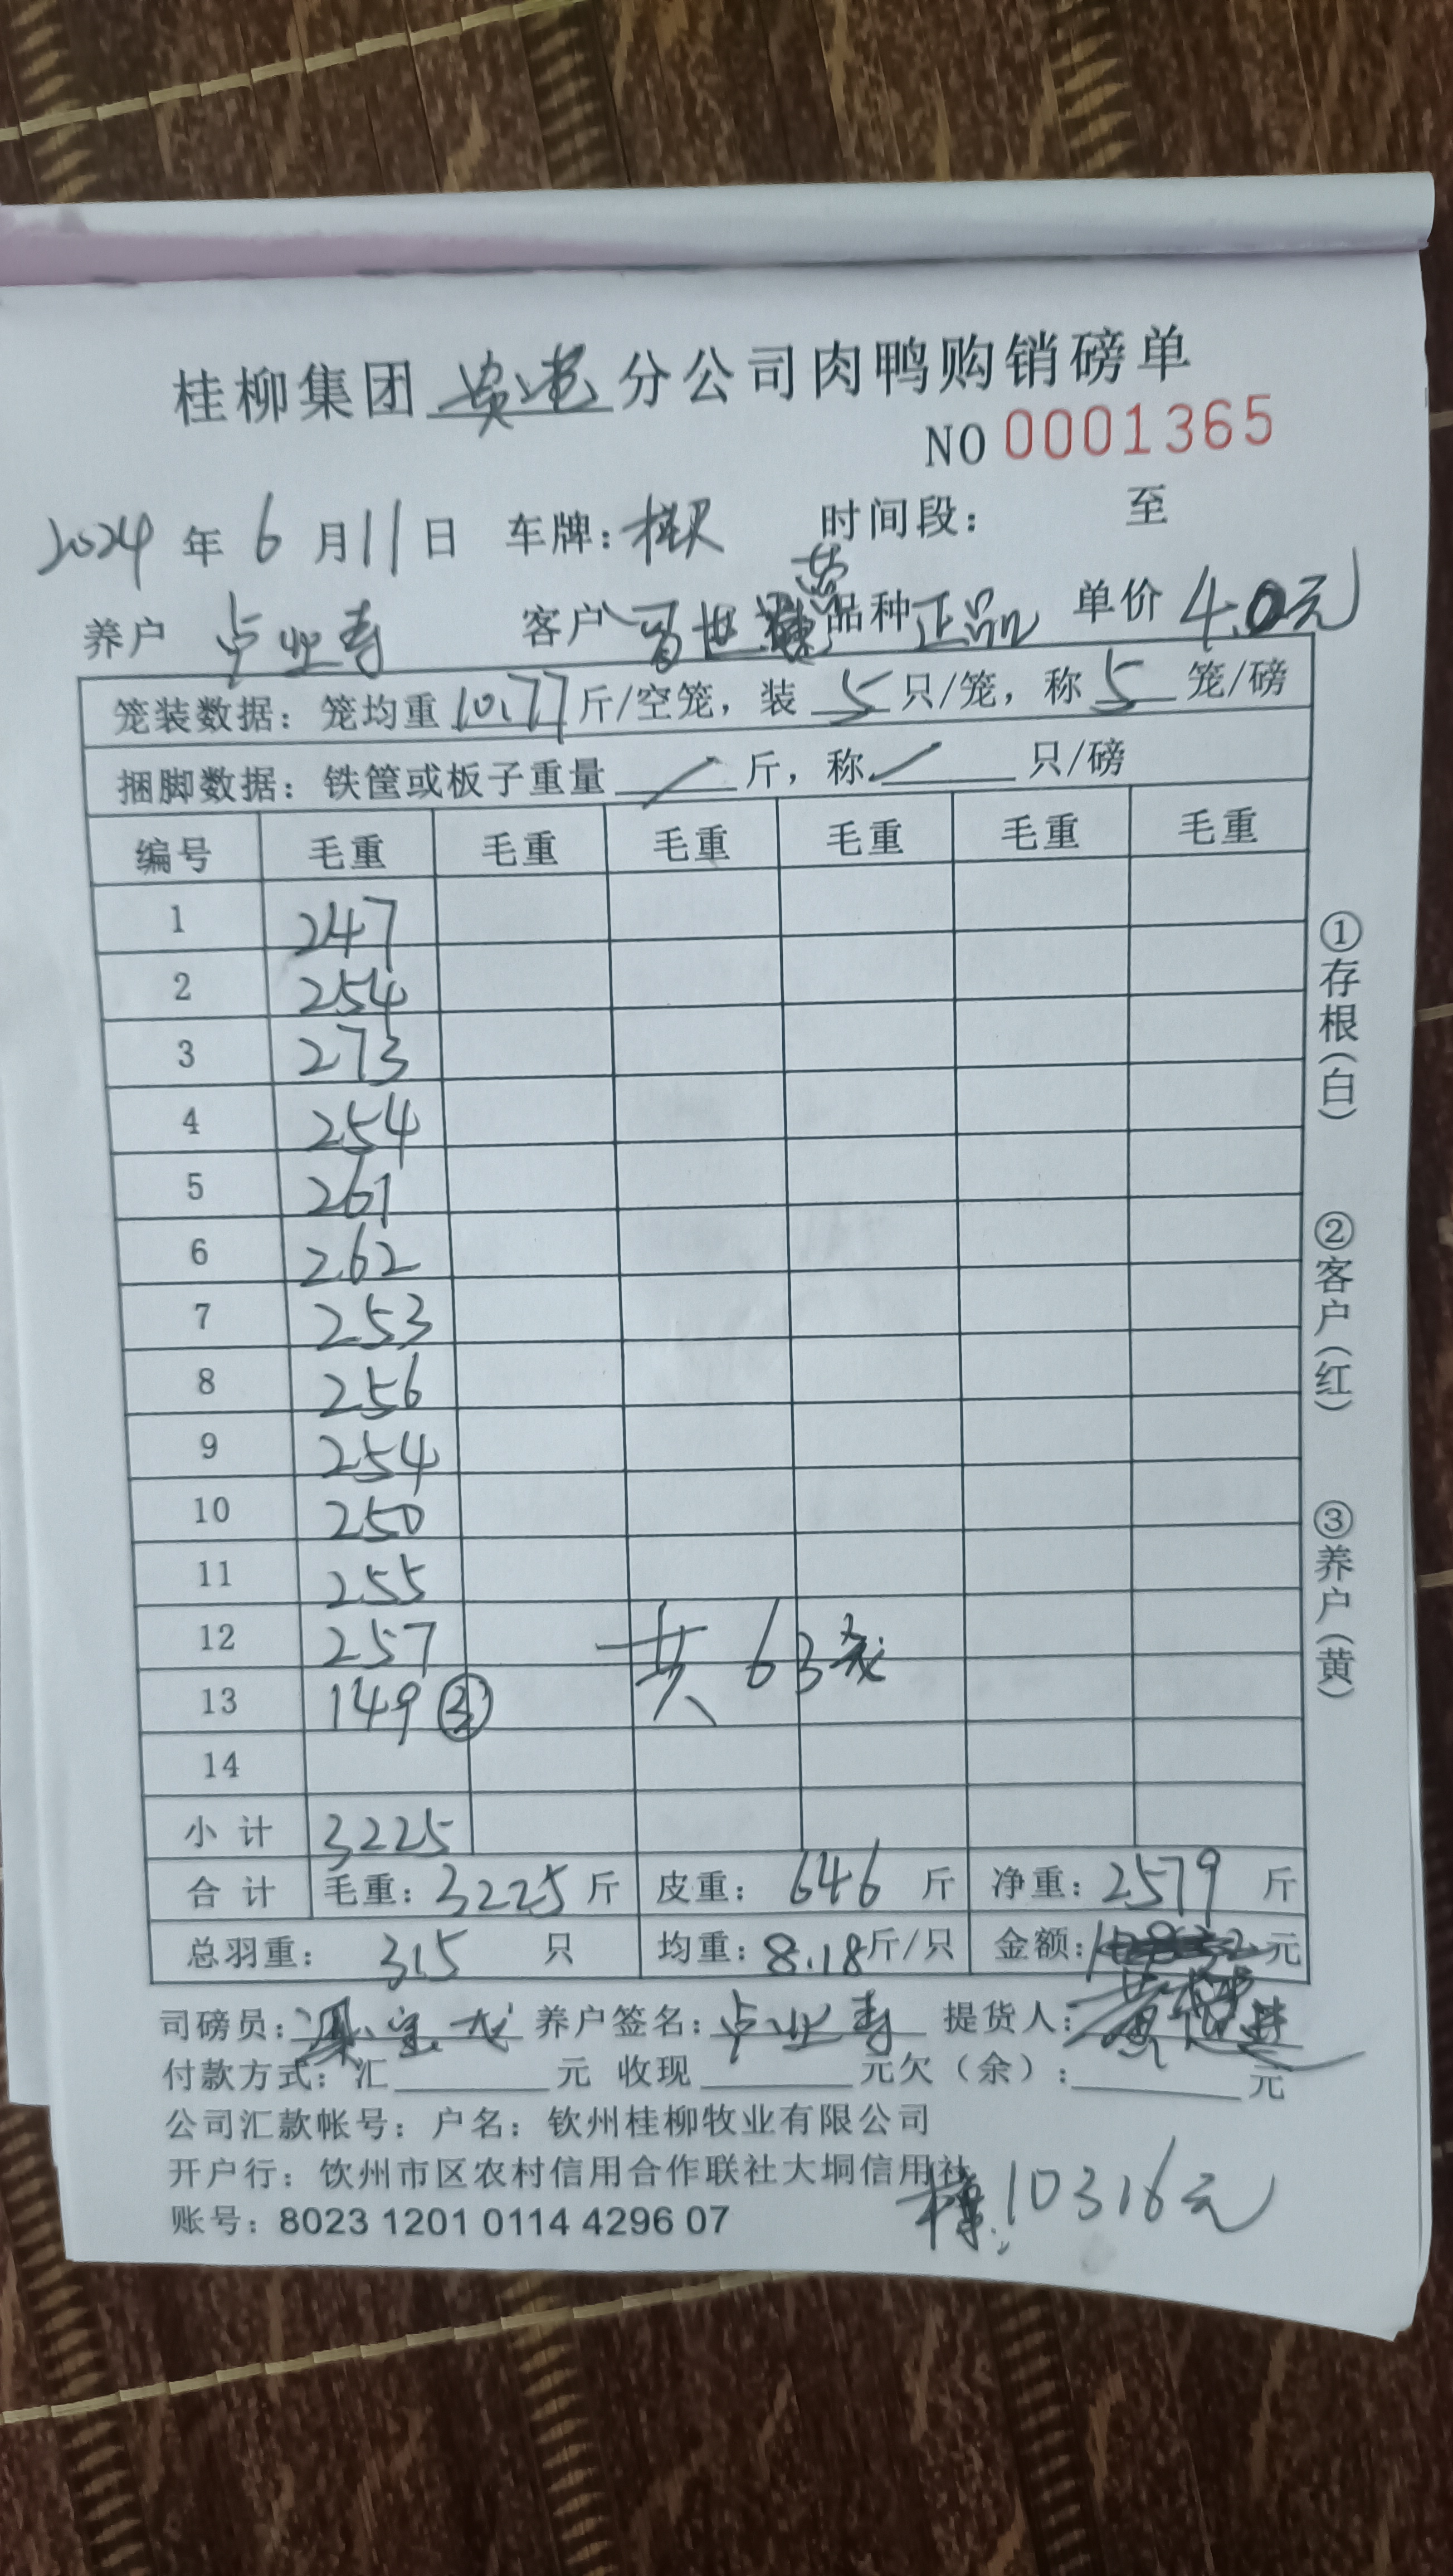 桂柳集团 贵港 分公司肉鸭购销磅单
NO 0001365
2024 年 6 月 11 日 车牌： 时间段： 至
养户 卢业寿 客户 品种 正品 单价 4.0元
笼装数据：笼均重 10.77 斤/空笼，装 5 只/笼，称 5 笼/磅
捆脚数据：铁筐或板子重量 / 斤，称 / 只/磅
编号 毛重 毛重 毛重 毛重 毛重 毛重
1 247
2 254
3 273
4 254
5 261
6 262
7 253
8 256
9 254
10 250
11 255
12 257 共 63笼
13 149 ③
14
小计 3225
合计 毛重：3225 斤 皮重：646 斤 净重：2579 斤
总羽重：315 只 均重：8.18 斤/只 金额： 元
司磅员： 养户签名：卢业寿 提货人：
付款方式：汇 元 收现 元欠（余）： 元
公司汇款帐号：户名：钦州桂柳牧业有限公司
开户行：钦州市区农村信用合作联社大垌信用社
账号：8023 1201 0114 4296 07
10316元
①存根(白)
②客户(红)
③养户(黄)